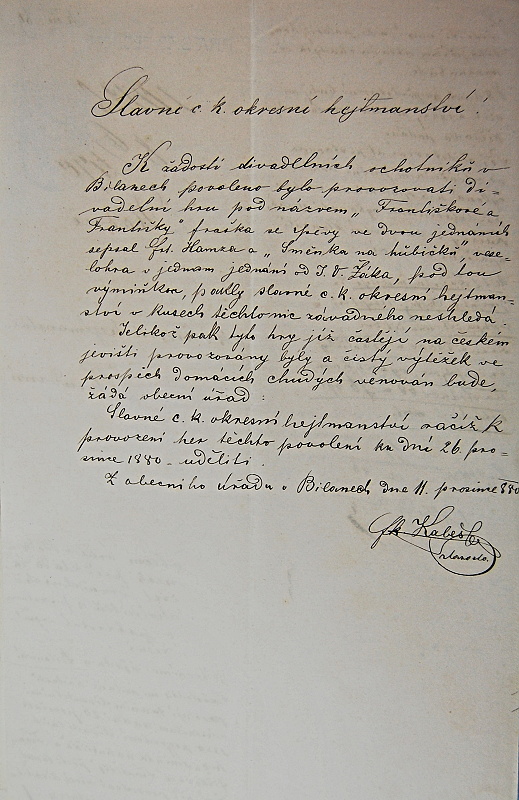 Slavné c. k. okresní hejtmanství!
K žádosti divadlních ochotníků v
Bílanech povoleno bylo provozovati di-
vadelní hru pod názvem „Františkové a
Františky fraška se zpěvy ve dvou jednáních
sepsal Frt. Hamza a „Směnka na hubičku", vese-
lohra v jednom jednání od J. V. Žáka, pod tou
výmínkou, pakly slavné c. k. okresní hejtman-
ství v kusech těchto nic závadného neshledá.
Jelikož pak tyto hry již častěji na českém
jevišti provozovány byly a čistý výtěžek ve
prospěch domácích chudých věnován bude,
žádá obecní úřad:
Slavné c. k. okresní hejtmanství račiž k
provození her těchto povolení ku dni 26. pro-
since 1880. uděliti.
Z obecního úřadu v Bílanech dne 11. prosince 880
starosta.